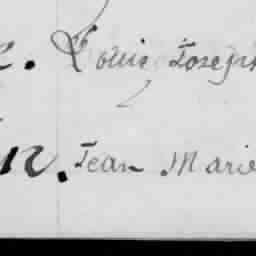 e. Louis Joseph
n. Jean Marie